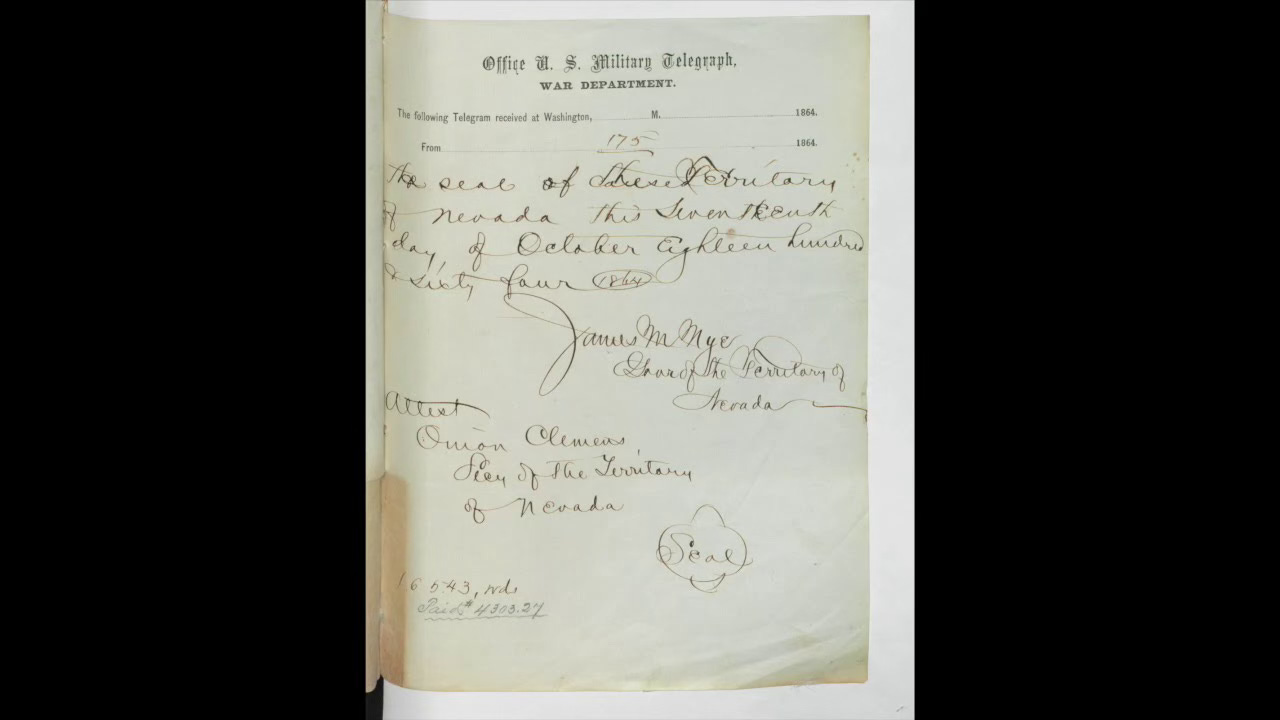 Office U. S. Military Telegraph,
WAR DEPARTMENT.
The following Telegram received at Washington, M. 1864.
From 175 1864.
The seal of the Territory
of Nevada this Seventeenth
day, of October Eighteen hundred
& Sixty four 1864
James M Nye
Govr of the Territory of
Nevada
Attest
Orion Clemens,
Secy of the Territory
of Nevada
Seal
16543, wds
Paid $4303.27